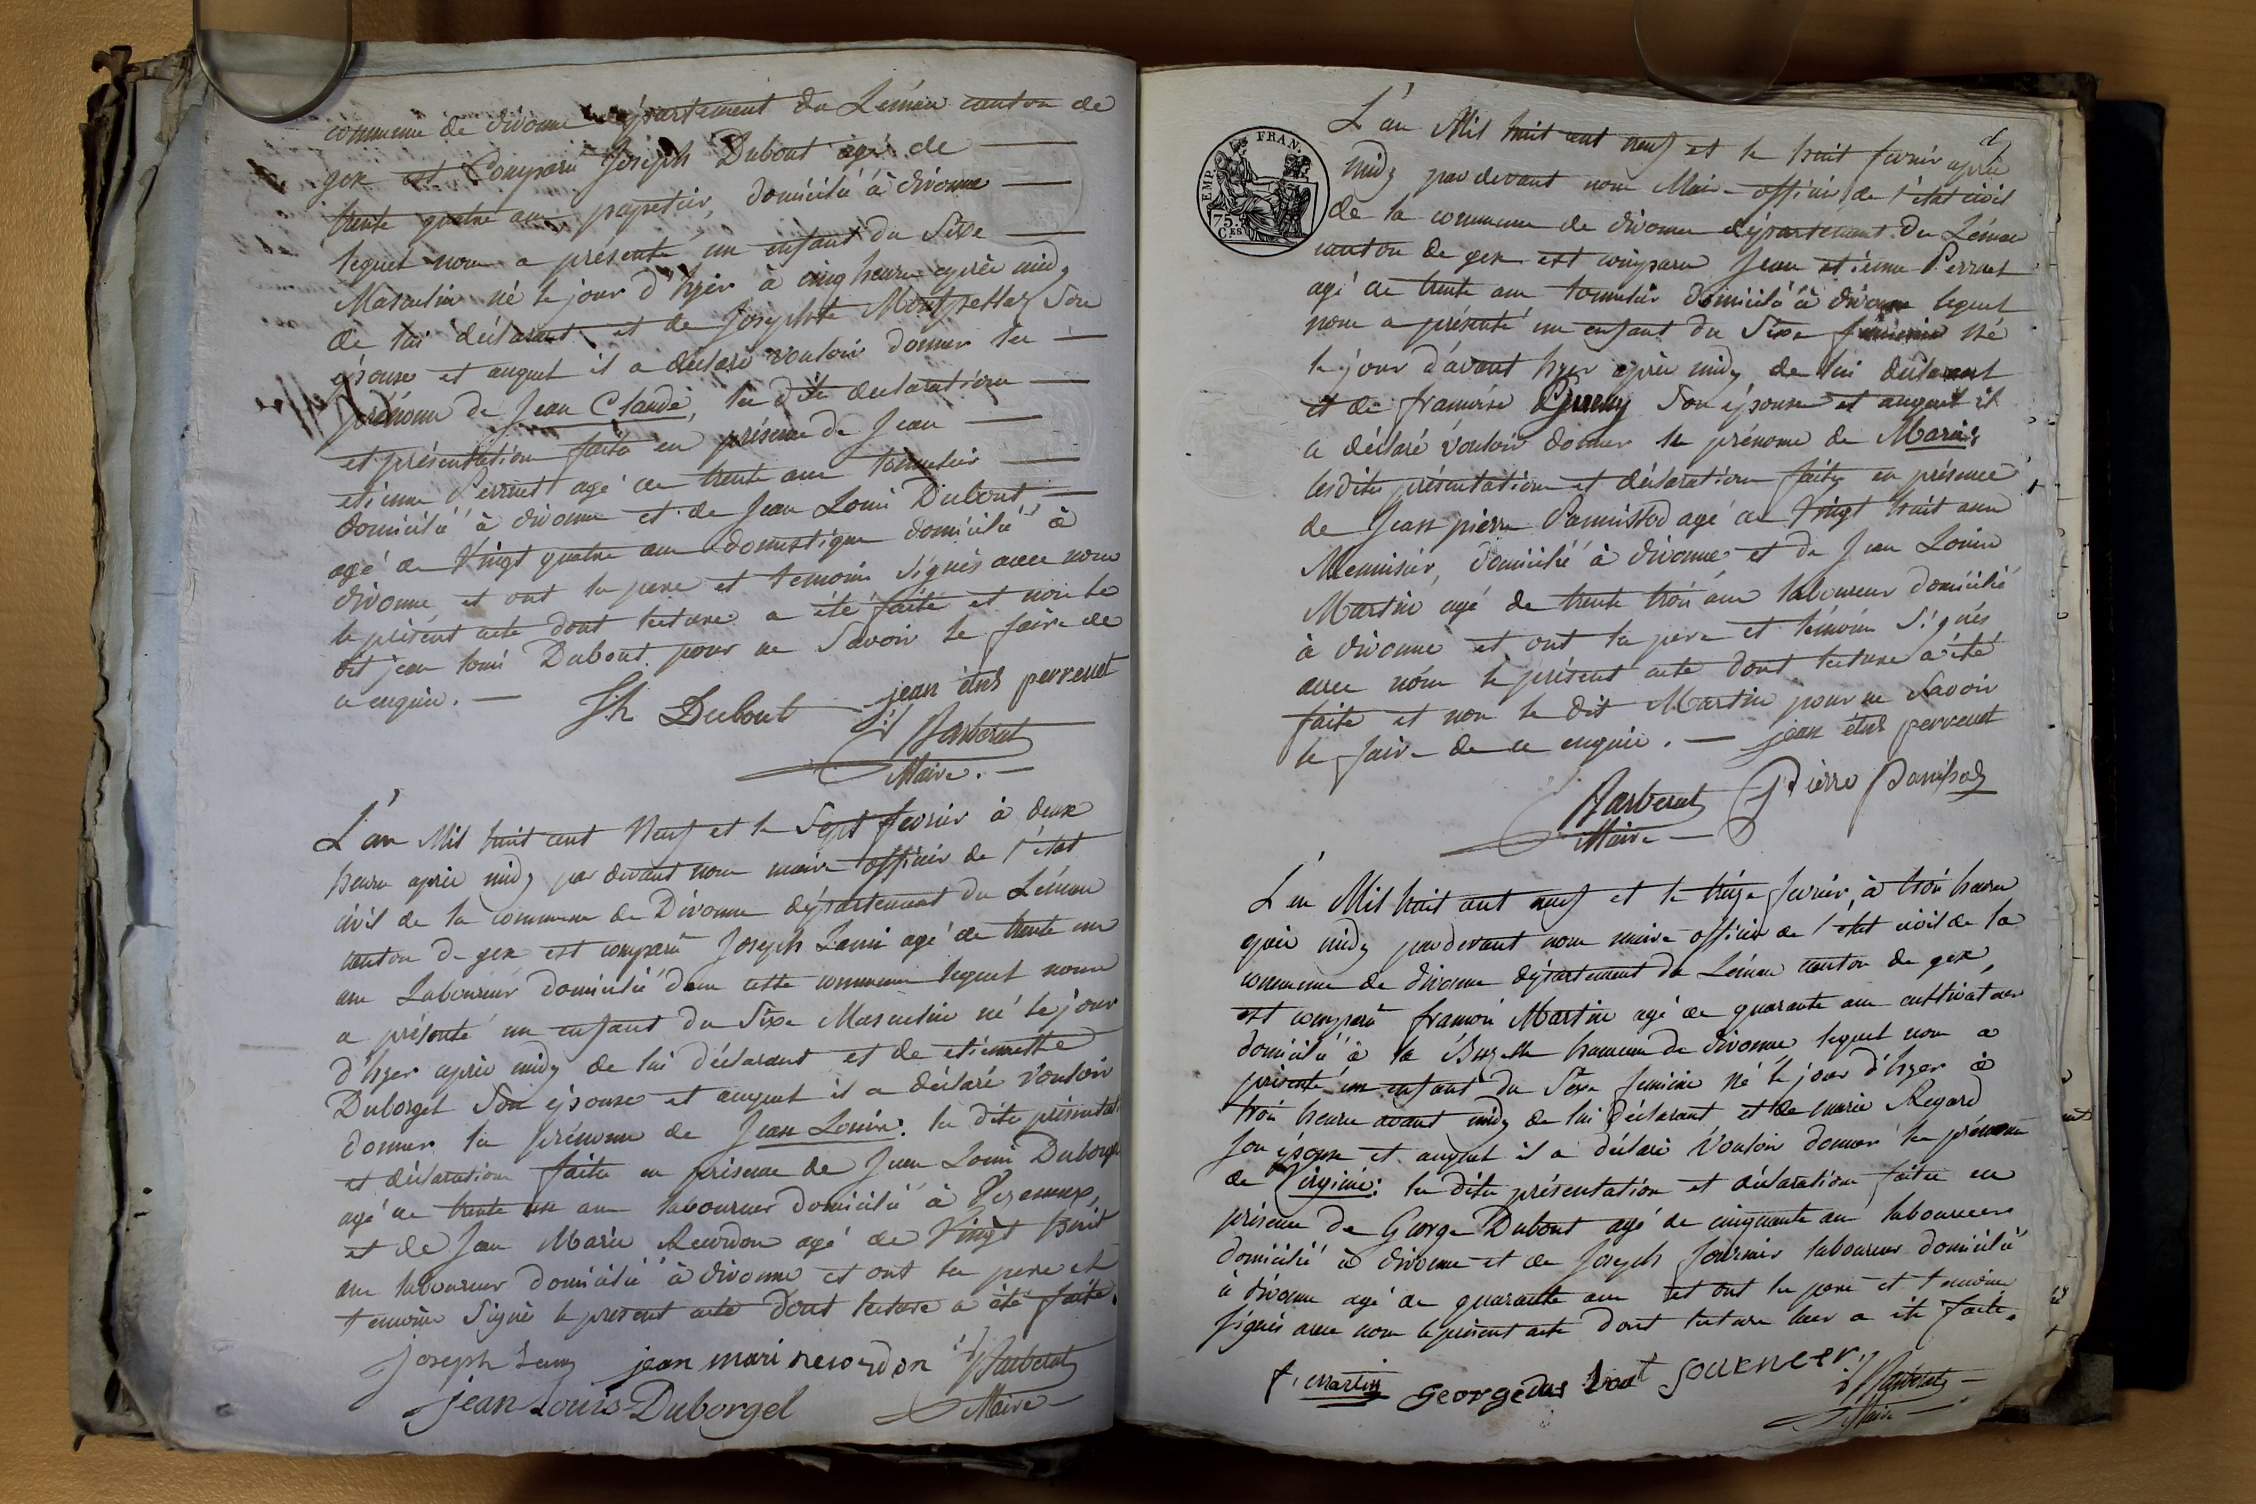 commune de divonne département du Léman canton de
gex est Comparu Joseph Dubout agé de
trente quatre ans papetier, domicilié à divonne
lequel nous a présenté un enfant du Sexe
Masculin né le jour d'hyer à cinq heures après midy
de lui déclarant et de Josephte Montpellaz Son
épouse et auquel il a déclaré vouloir donner les
prénoms de Jean Claude, les dite déclaration
et présentation faite en présence de Jean
etienne Perrnet agé de trente ans tonnelier
domicilié à divonne et de Jean Louis Dubout
agé de Vingt quatre ans domestique domicilié à
divonne et ont les pere et temoins Signés avec nous
le présent acte dont lecture a été faite et non le
dit jean louis Dubout pour ne Savoir le faire de
ce enquis.
Jh Dubout jean étne perrenet
Barberat
Maire.
L'an Mil huit cent Neuf et le Sept fevrier à deux
heures après midy par devant nous maire officier de l'état
civil de la commune de Divonne département du Léman
canton de gex est comparu Joseph Lami agé de trente un
ans Laboureur domicilié dans cette commune lequel nous
a présenté un enfant du Sexe Masculin né le jour
d'hyer après midy de lui déclarant et de etiennette
Duborgel Son épouse et auquel il a déclaré vouloir
donner les prénoms de Jean Louis. les dite présentati
et déclaration faite en présence de Jean Louis Duborgel
agé de trente ans laboureur domicilié à
et de Jean Marie Recordon agé de Vingt huit
ans laboureur domicilié à divonne et ont les pere et
temoins Signé le présent acte Dont lecture a été faite.
Joseph Lamy jean mari recordon Barberat
jean Louis Duborgel Maire
EMP. FRAN.
75.
CES
L'an Mil huit cent neuf et le huit fevrier après
midy par devant nous Maire officier de l'état civil
de la commune de divonne département du Léman
canton de gex est comparu Jean etienne Perrnet
agé de trente ans tonnelier domicilié à divonne lequel
nous a présenté un enfant du Sexe féminin Né
le jour d'avant hyer après midy de lui déclarant
et de françoise Son épouse et auquel il
a déclaré vouloir donner le prénoms de Marie;
lesdites présentation et déclaration faites en présence
de Jean pierre Panissod agé de Vingt huit ans
Menuisier, domicilié à divonne, et de Jean Louis
Martin agé de trente trois ans laboureur domicilié
à divonne et ont les pere et témoins Signés
avec nous le présent acte dont lecture a été
faite et non le dit Martin pour ne Savoir
le faire de ce enquis. jean étne perrenet
Barberat Pierre Panissod
Maire
L'an Mil huit cent neuf et le treize fevrier, à trois heures
après midy par devant nous maire officier de l'état civil de la
commune de divonne département du Léman canton de gex,
est comparu françois Martin agé de quarante ans cultivateur
domicilié à la hameau de divonne lequel nous a
présenté un enfant du Sexe feminin Né le jour d'hyer à
trois heures avant midy de lui déclarant et de marie Regard
son épouse et auquel il a déclaré Vouloir donner le prénom
de Virginie: les dites présentation et déclaration faites en
présence de George Dubout agé de cinquante ans laboureur
domicilié à divonne et de Joseph fournier laboureur domicilié
à divonne agé de quarante ans et ont les pere et temoins
signés avec nous le présent acte Dont lecture leur a été faite.
f. martin George dus bout fourneer Barberat
Maire